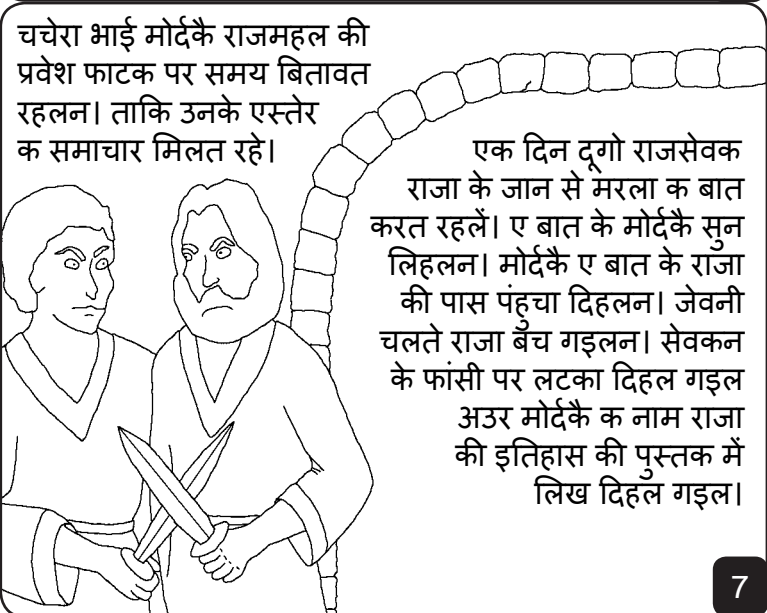 चचेरा भाई मोर्दकै राजमहल की
प्रवेश फाटक पर समय बितावत
रहलन। ताकि उनके एस्तेर
क समाचार मिलत रहे।
एक दिन दूगो राजसेवक
राजा के जान से मरला क बात
करत रहलें। ए बात के मोर्दकै सुन
लिहलन। मोर्दकै ए बात के राजा
की पास पंहुचा दिहलन। जेवनी
चलते राजा बच गइलन। सेवकन
के फांसी पर लटका दिहल गइल
अउर मोर्दकै क नाम राजा
की इतिहास की पुस्तक में
लिख दिहल गइल।
7